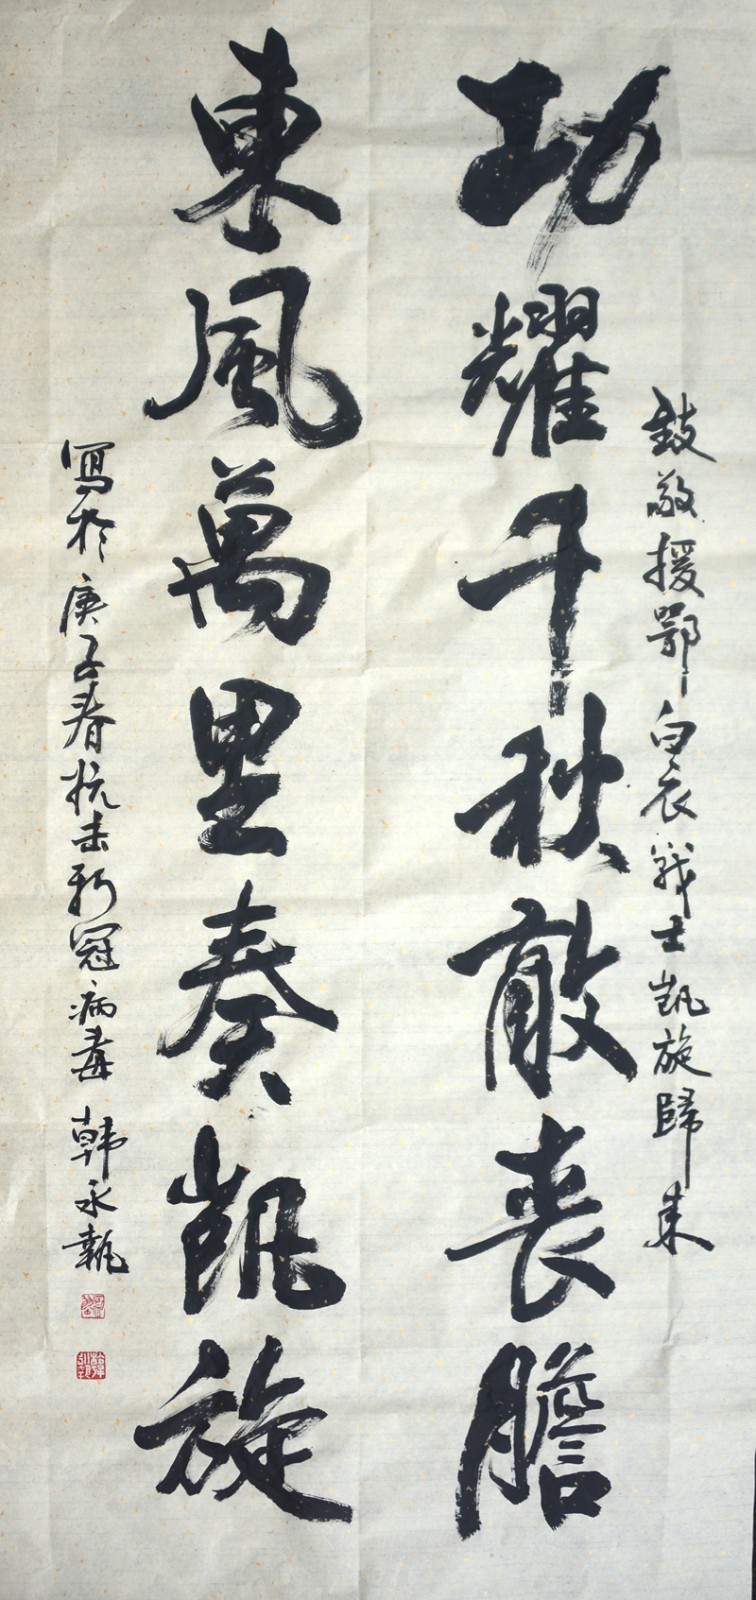 致敬援鄂白衣戰士凱旋歸来
功耀千秋敵喪膽
東風萬里奏凱旋
寫於庚子春抗击新冠病毒 韩永執